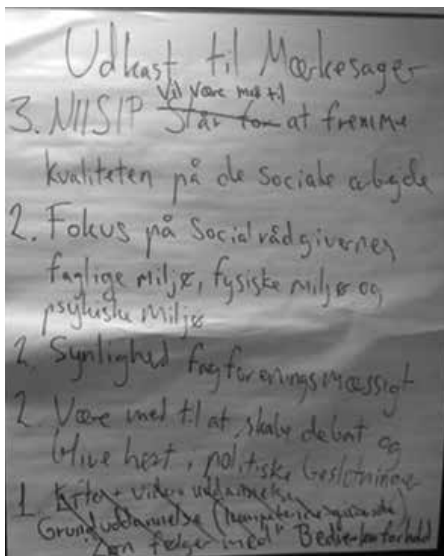 Udkast til Mærkesager
Vil være med til
3. NIISIP Står for at fremme
kvaliteten på de sociale arbejde
2. Fokus på Socialrådgivernes
faglige miljø, fysiske miljø og
psykiske miljø
2. Synlighed fagforeningsmæssigt
2. Være med til at skabe debat og
blive hørt i politiske beslutninger
1. Efter + videre uddannelse
Grunduddannelse
"Løn følger med" Bedre lønforhold